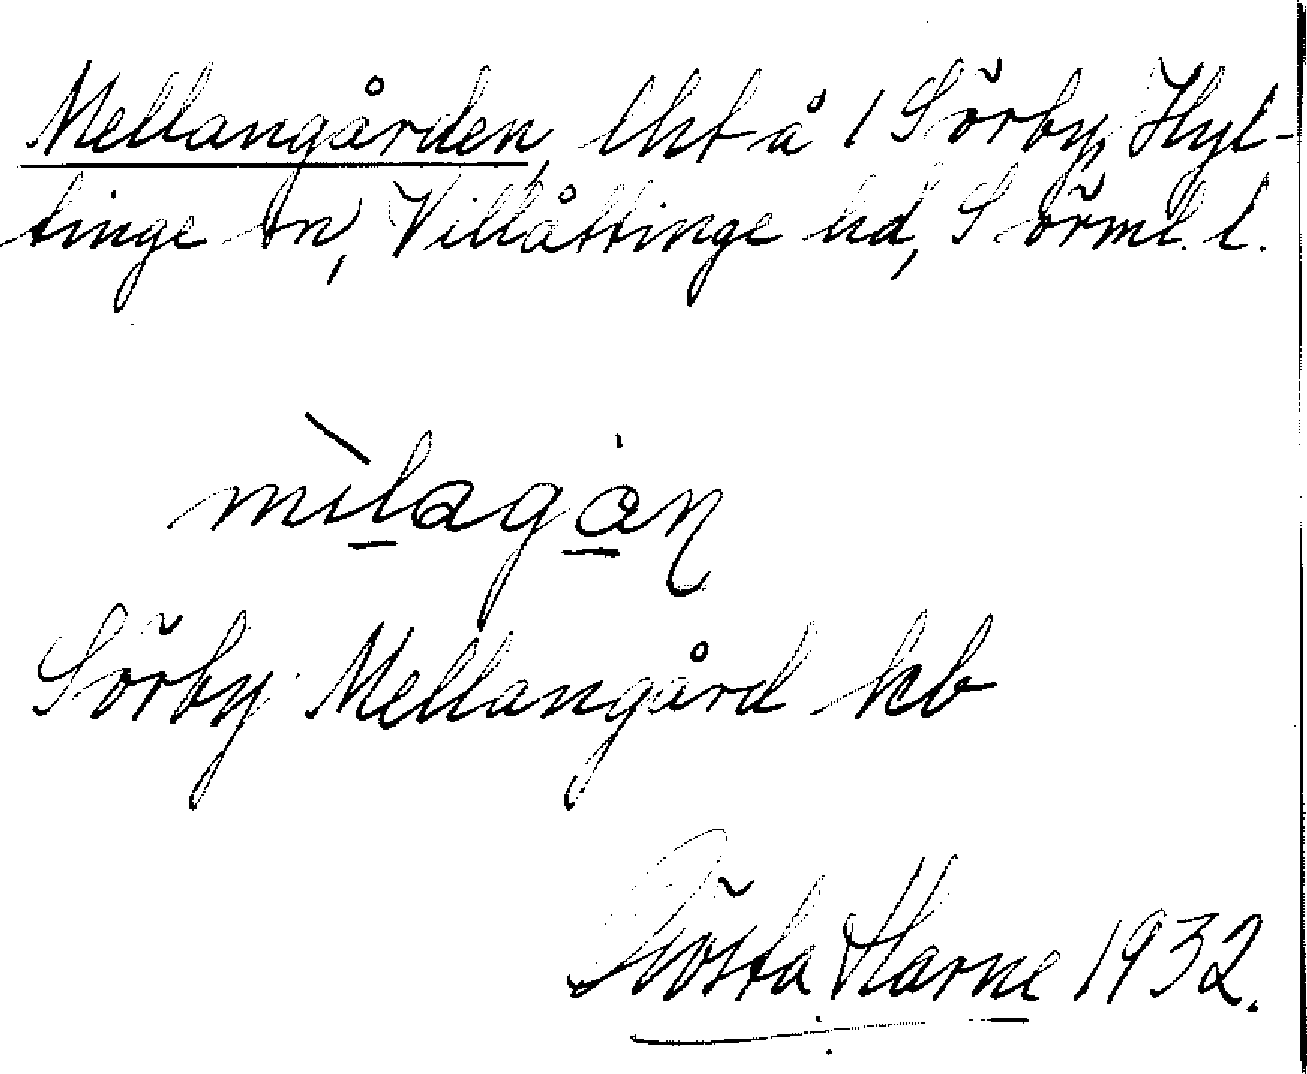 Mellangården, lht å 1 Sörby, Hyl-
tinge sn, Villåttinge hd, Sörml. l.
mìlagȧn
Sörby Mellangård kb
Gösta Harne 1932.